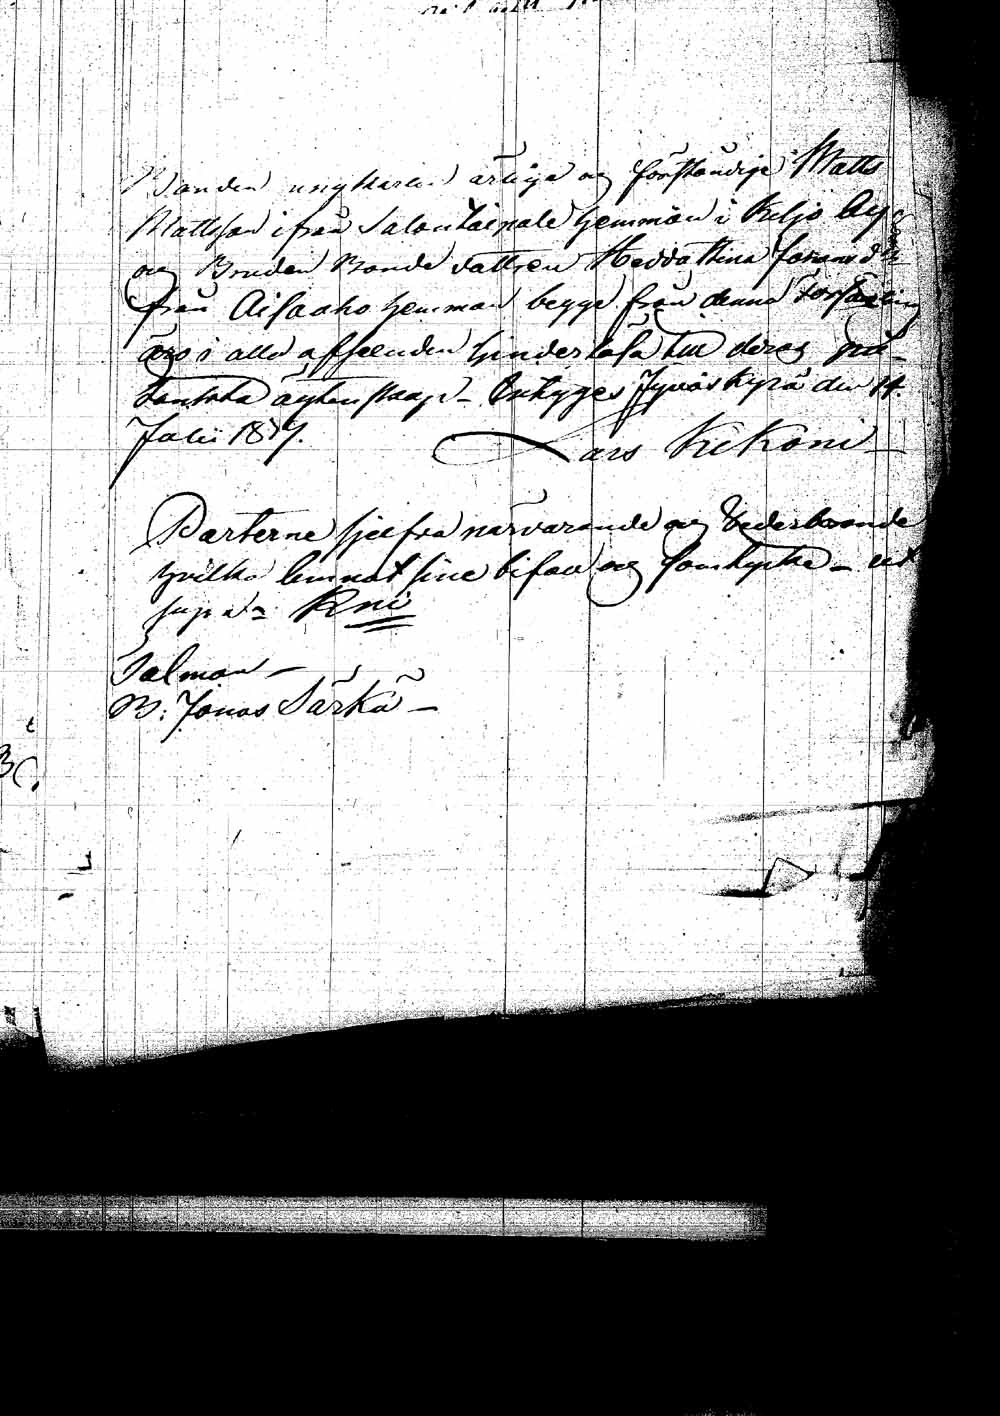 Bonden ungkarlen ärliga og förståndige Matts
Mattsson ifrån Salon Taipale hemman i Keljo By
og Bruden Bonde dottren Hedda Stina Johansd:r
från Aisaaho hemman begge från denna Försam̃ling
äro i alla afseenden hinderlösa till deras
äghtenskap. Betyges Jyväskylä den 14.
Julii 1857.
Lars Kikoni

Parterne sjelfva närvarande og Vederbörande
hvilka lemnat sine bifall og samtycke – ut
supra. Kni
Talman –
B: Jonas Särkä –